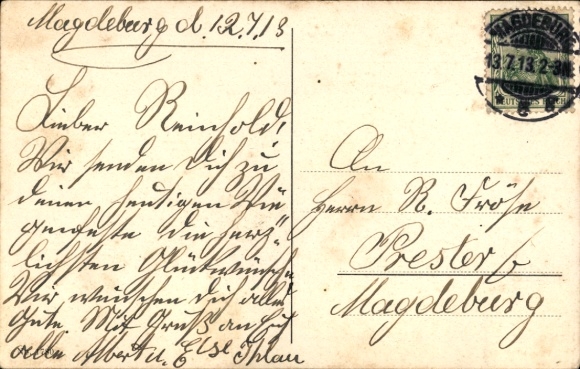 Magdeburg d. 12.7.13
Lieber Reinhold!
Wir senden Dich zu
deinen heutigen Wie
genfeste die herz-
lichsten Glückwünsche
Wir wünschen Dich alles
Gute. Mit Gruß an Euch
alle Albert u. Else Ihlau
MAGDEBURG
13.7.13. 2-3N.
An
Herrn R. Fröse
Prester b/
Magdeburg